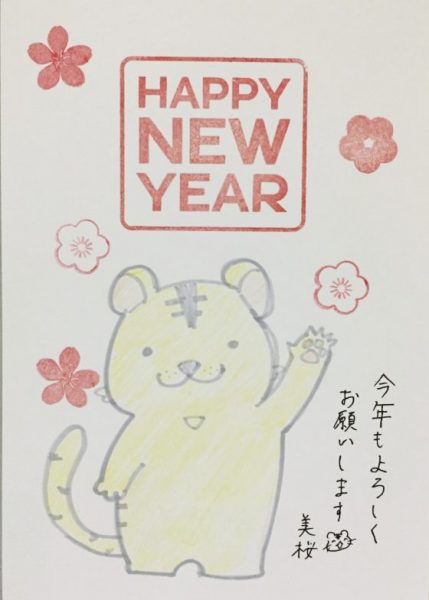 HAPPY
NEW
YEAR
今年もよろしく
お願いします
美桜